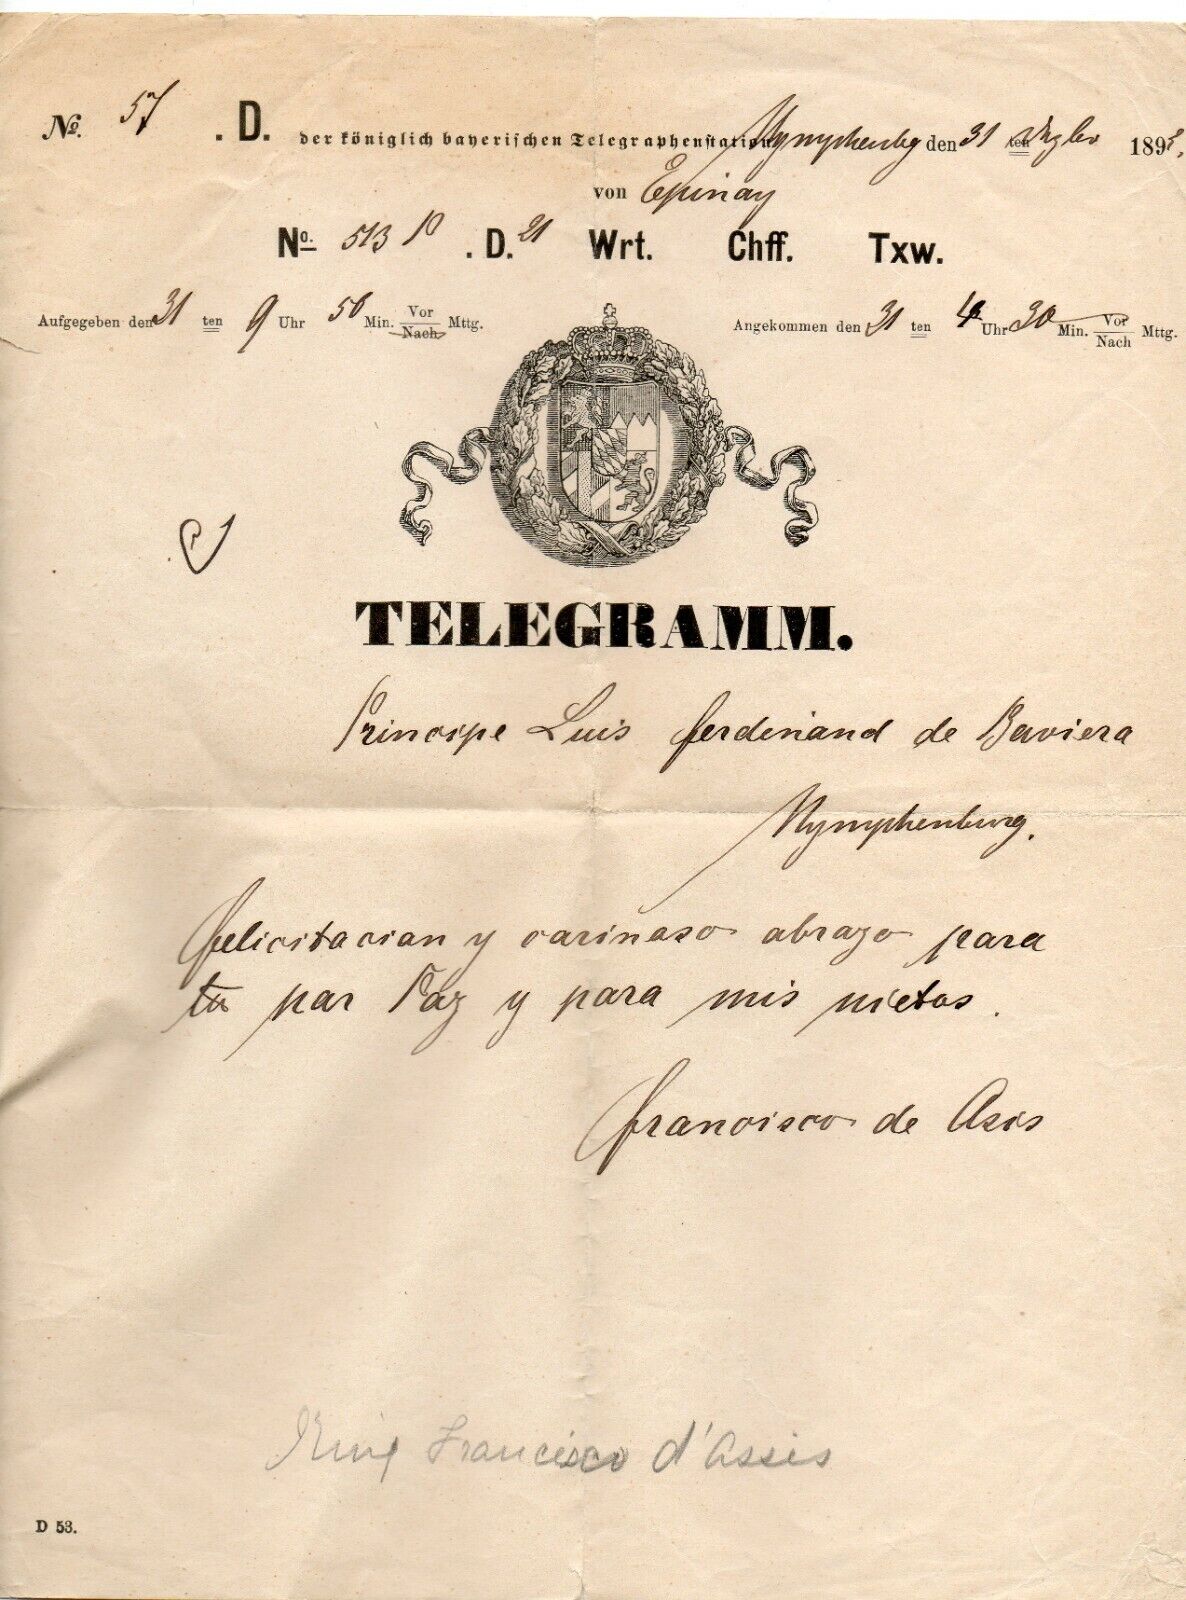 No. 57 . D. der königlich bayerischen Telegraphenstation Nymphenbg den 31 ten Dezbr 189
von Epinay
No. 513 P . D. 21 Wrt. Chff. Txw.
Aufgegeben den 31 ten 9 Uhr 50 Min. Vor/Nach Mttg.
Angekommen den 31 ten 4 Uhr 30 Min. Vor/Nach Mttg.
TELEGRAMM.
Principe Luis Ferdinand de Baviera
Nymphenburg.
Felicitacian y carinaso abrazo para
tu par Paz y para mis nietos.
Francisco de Asis
King Francisco d'Assis
D 53.